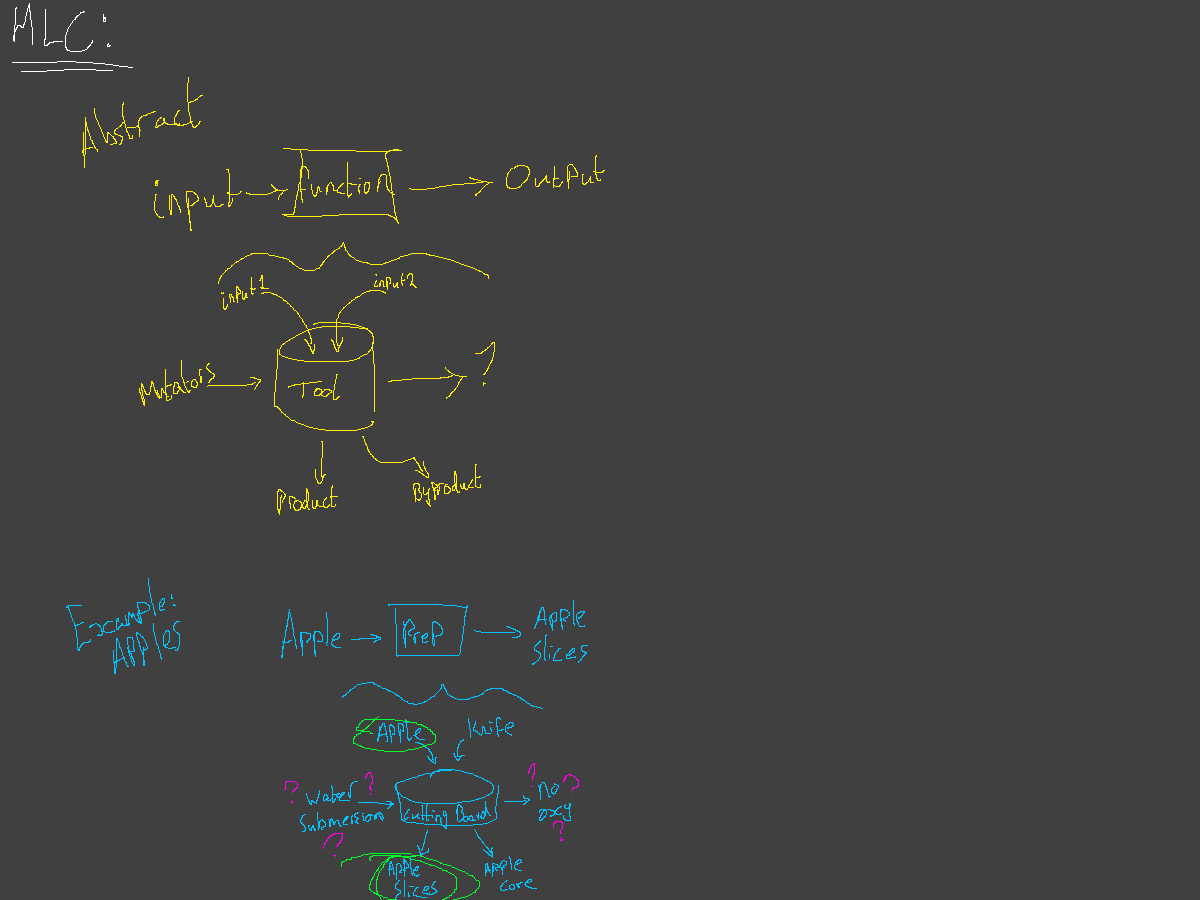 MLC:
Abstract
input
function
Output
input1
input2
Mutators
Tool
?
Product
ByProduct
Example:
APPles
Apple
PreP
Apple
slices
Apple
Knife
? Water ?
Submersion
?
Cutting Board
? No ?
oxy
?
Apple
slices
Apple
core